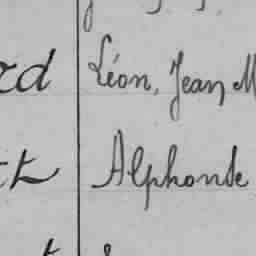 rd Léon, Jean M
tt Alphonse